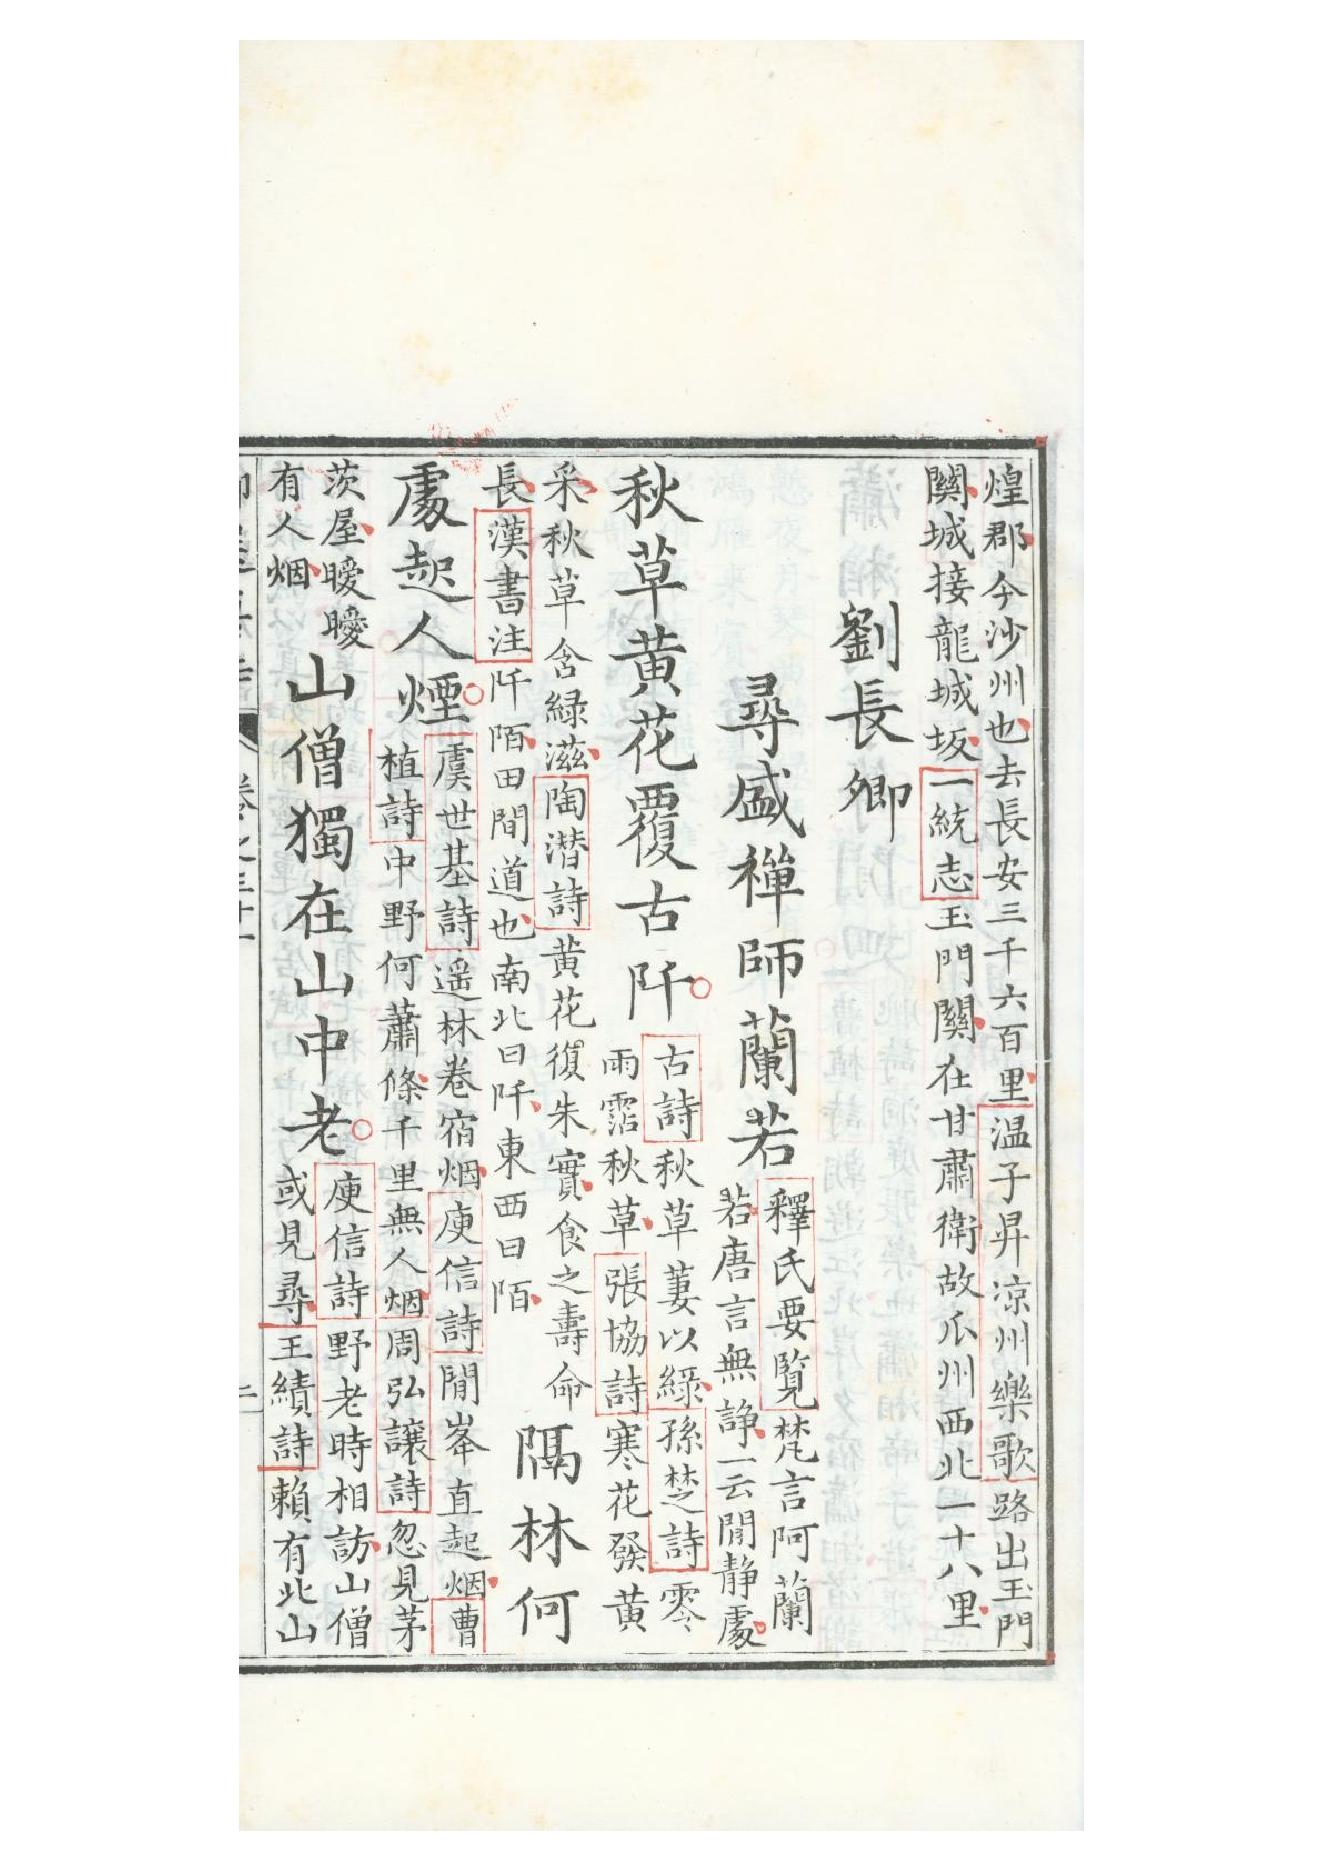 煌郡今沙州也去長安三千六百里温子昇凉州樂歌路出玉門
關城接龍城坂一統志玉門關在甘肅衛故瓜州西北一十八里
劉長卿
尋盛禪師蘭若
釋氏要覧梵言阿蘭
若唐言無諍一云閒静處
秋草黄花覆古阡
古詩秋草萋以綠孫楚詩零
雨霑秋草張協詩寒花發黄
采秋草含緑滋陶潜詩黄花復朱實食之壽命
長漢書注阡陌田間道也南北曰阡東西曰陌
隔林何
處起人煙
虞世基詩遥林卷宿烟庾信詩閒峯直起烟曹
植詩中野何蕭條千里無人烟周弘譲詩忽見茅
茨屋曖曖
有人烟
山僧獨在山中老
庾信詩野老時相訪山僧
或見尋王績詩賴有北山
卷之三十一
二